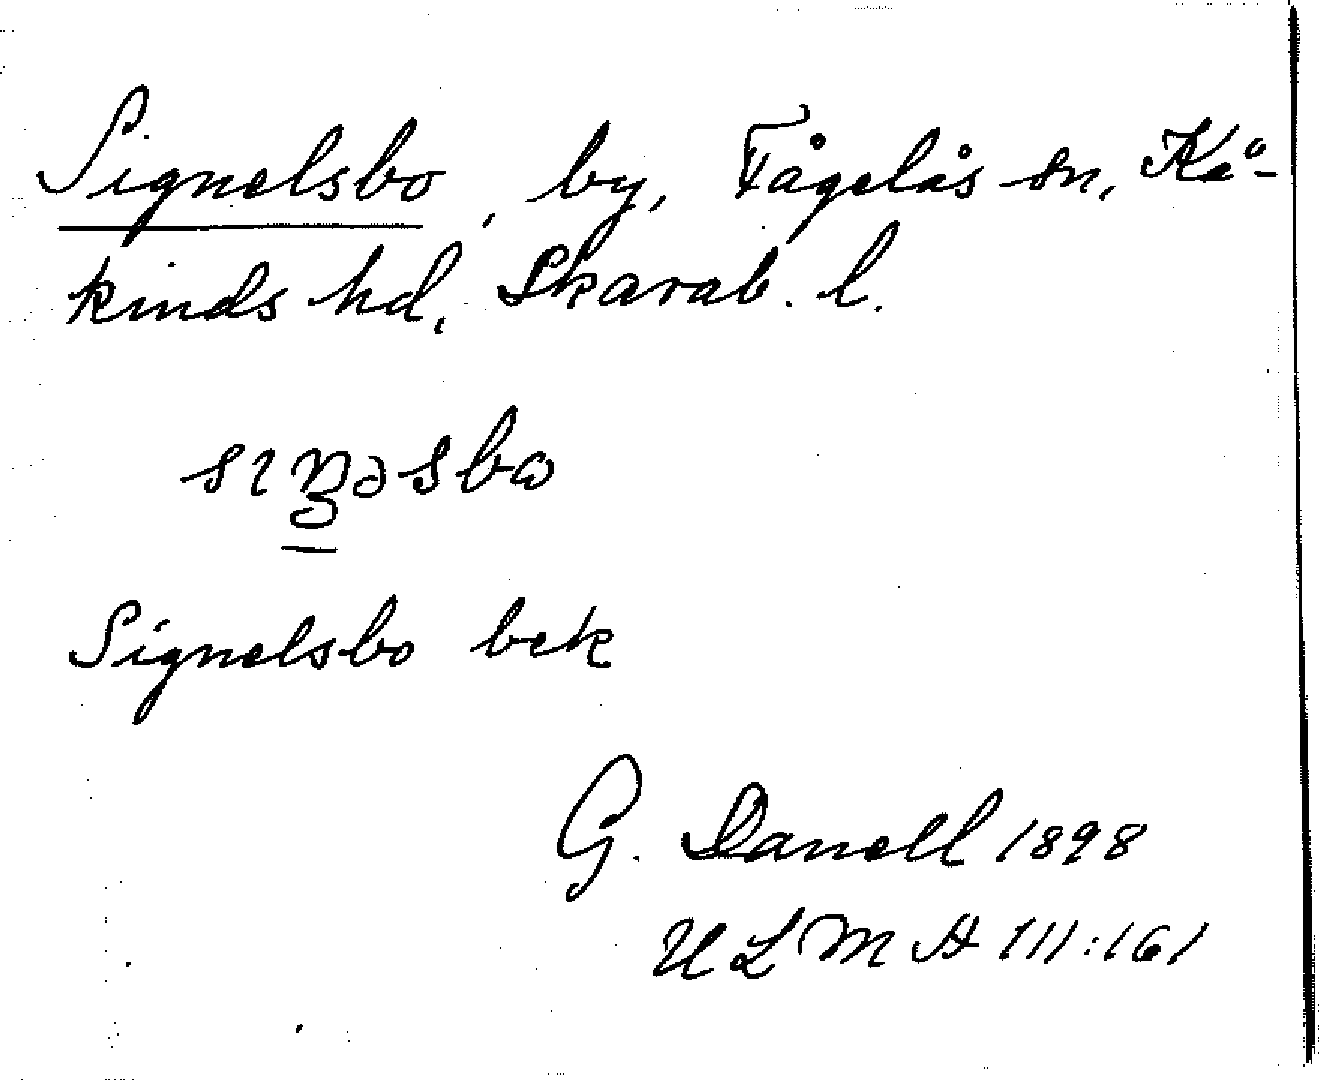 Signelsbo, by, Fågelås sn, Kå-
kinds hd, Skarab. l.
sıŋəsbω
Signelsbo bek
G. Danell 1898
ULMA 111:161